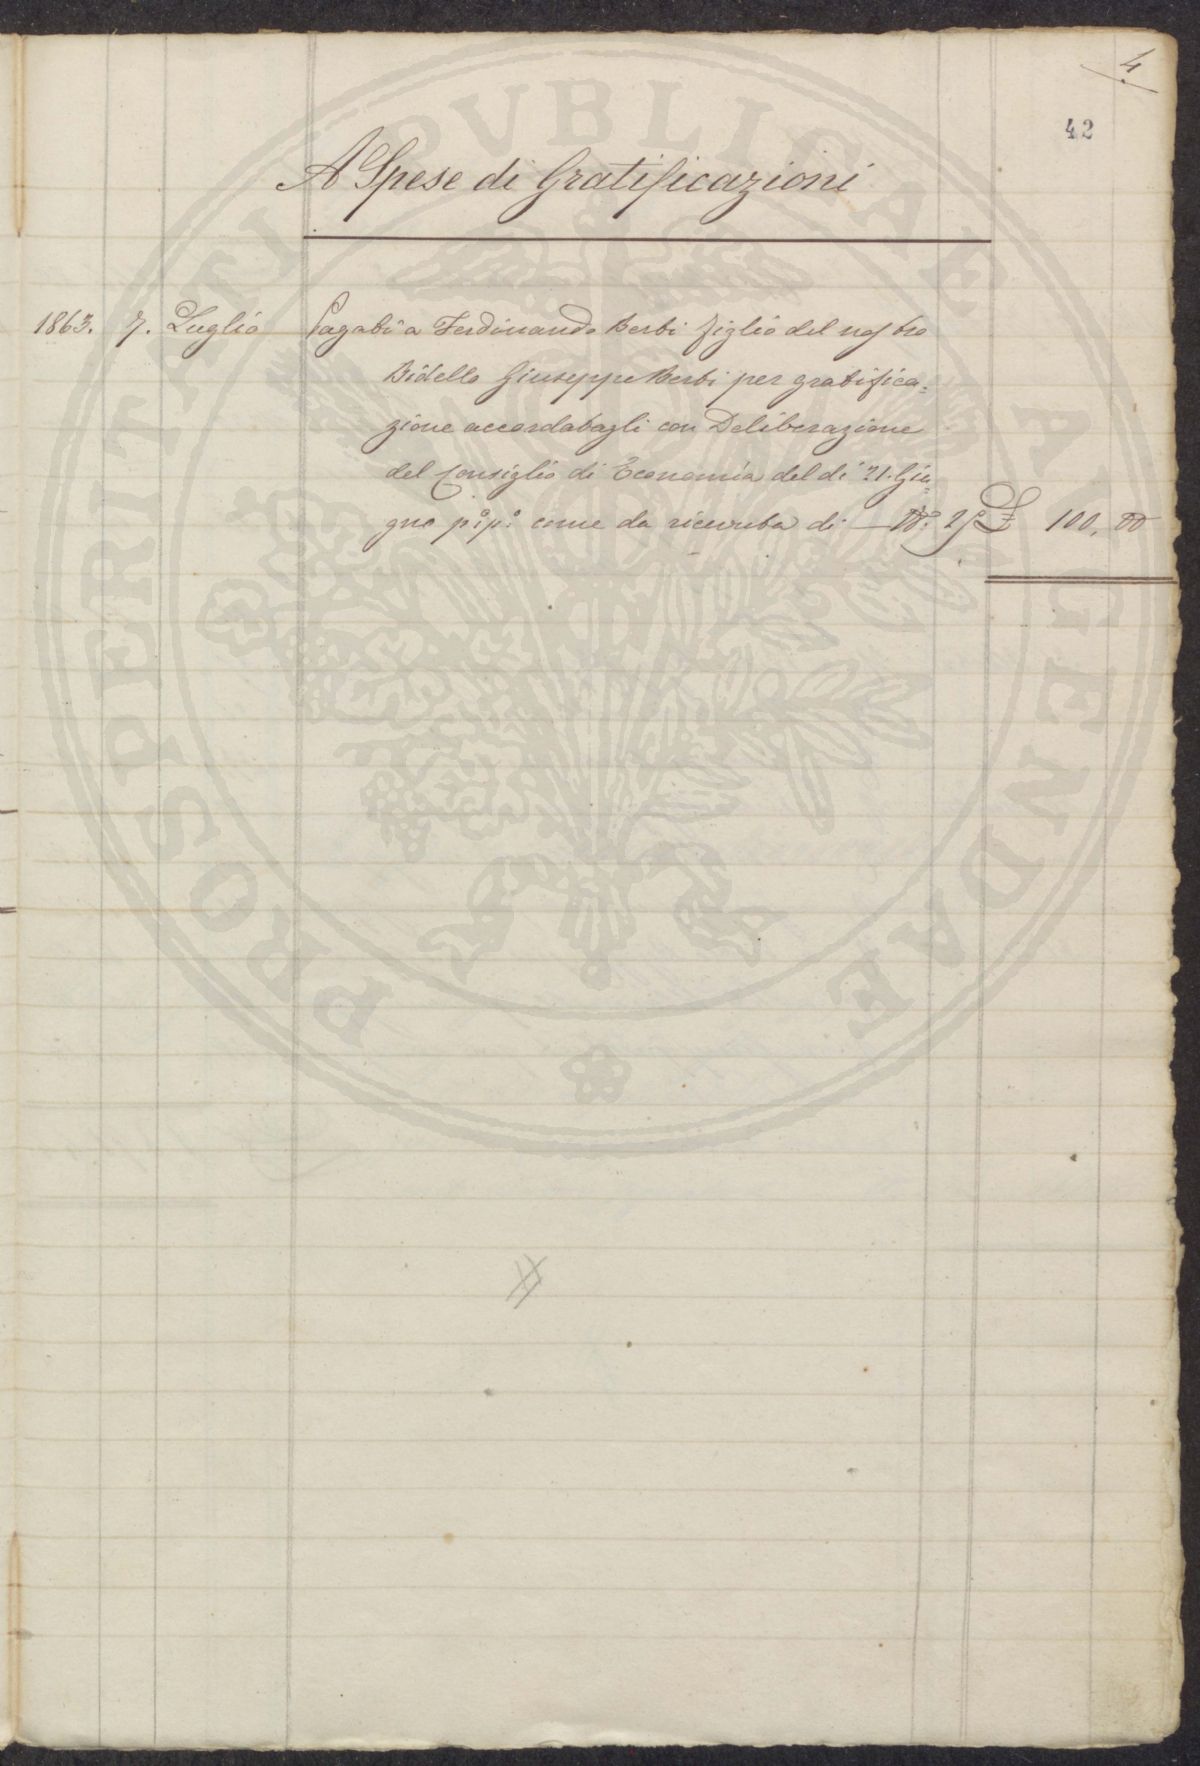 4
42
A Spese di Gratificazioni
1863. 7. Luglio Pagati a Ferdinando Berti figlio del nostro
Bidello Giuseppe Berti per gratifica=
zione accordatagli con Deliberazione
del Consiglio di Economia del dì 21. Giu=
gno p.º p.º come da ricevuta di — N.º 25 £ 100, 00
PROSPERITATI PVBLICAE AVGENDAE